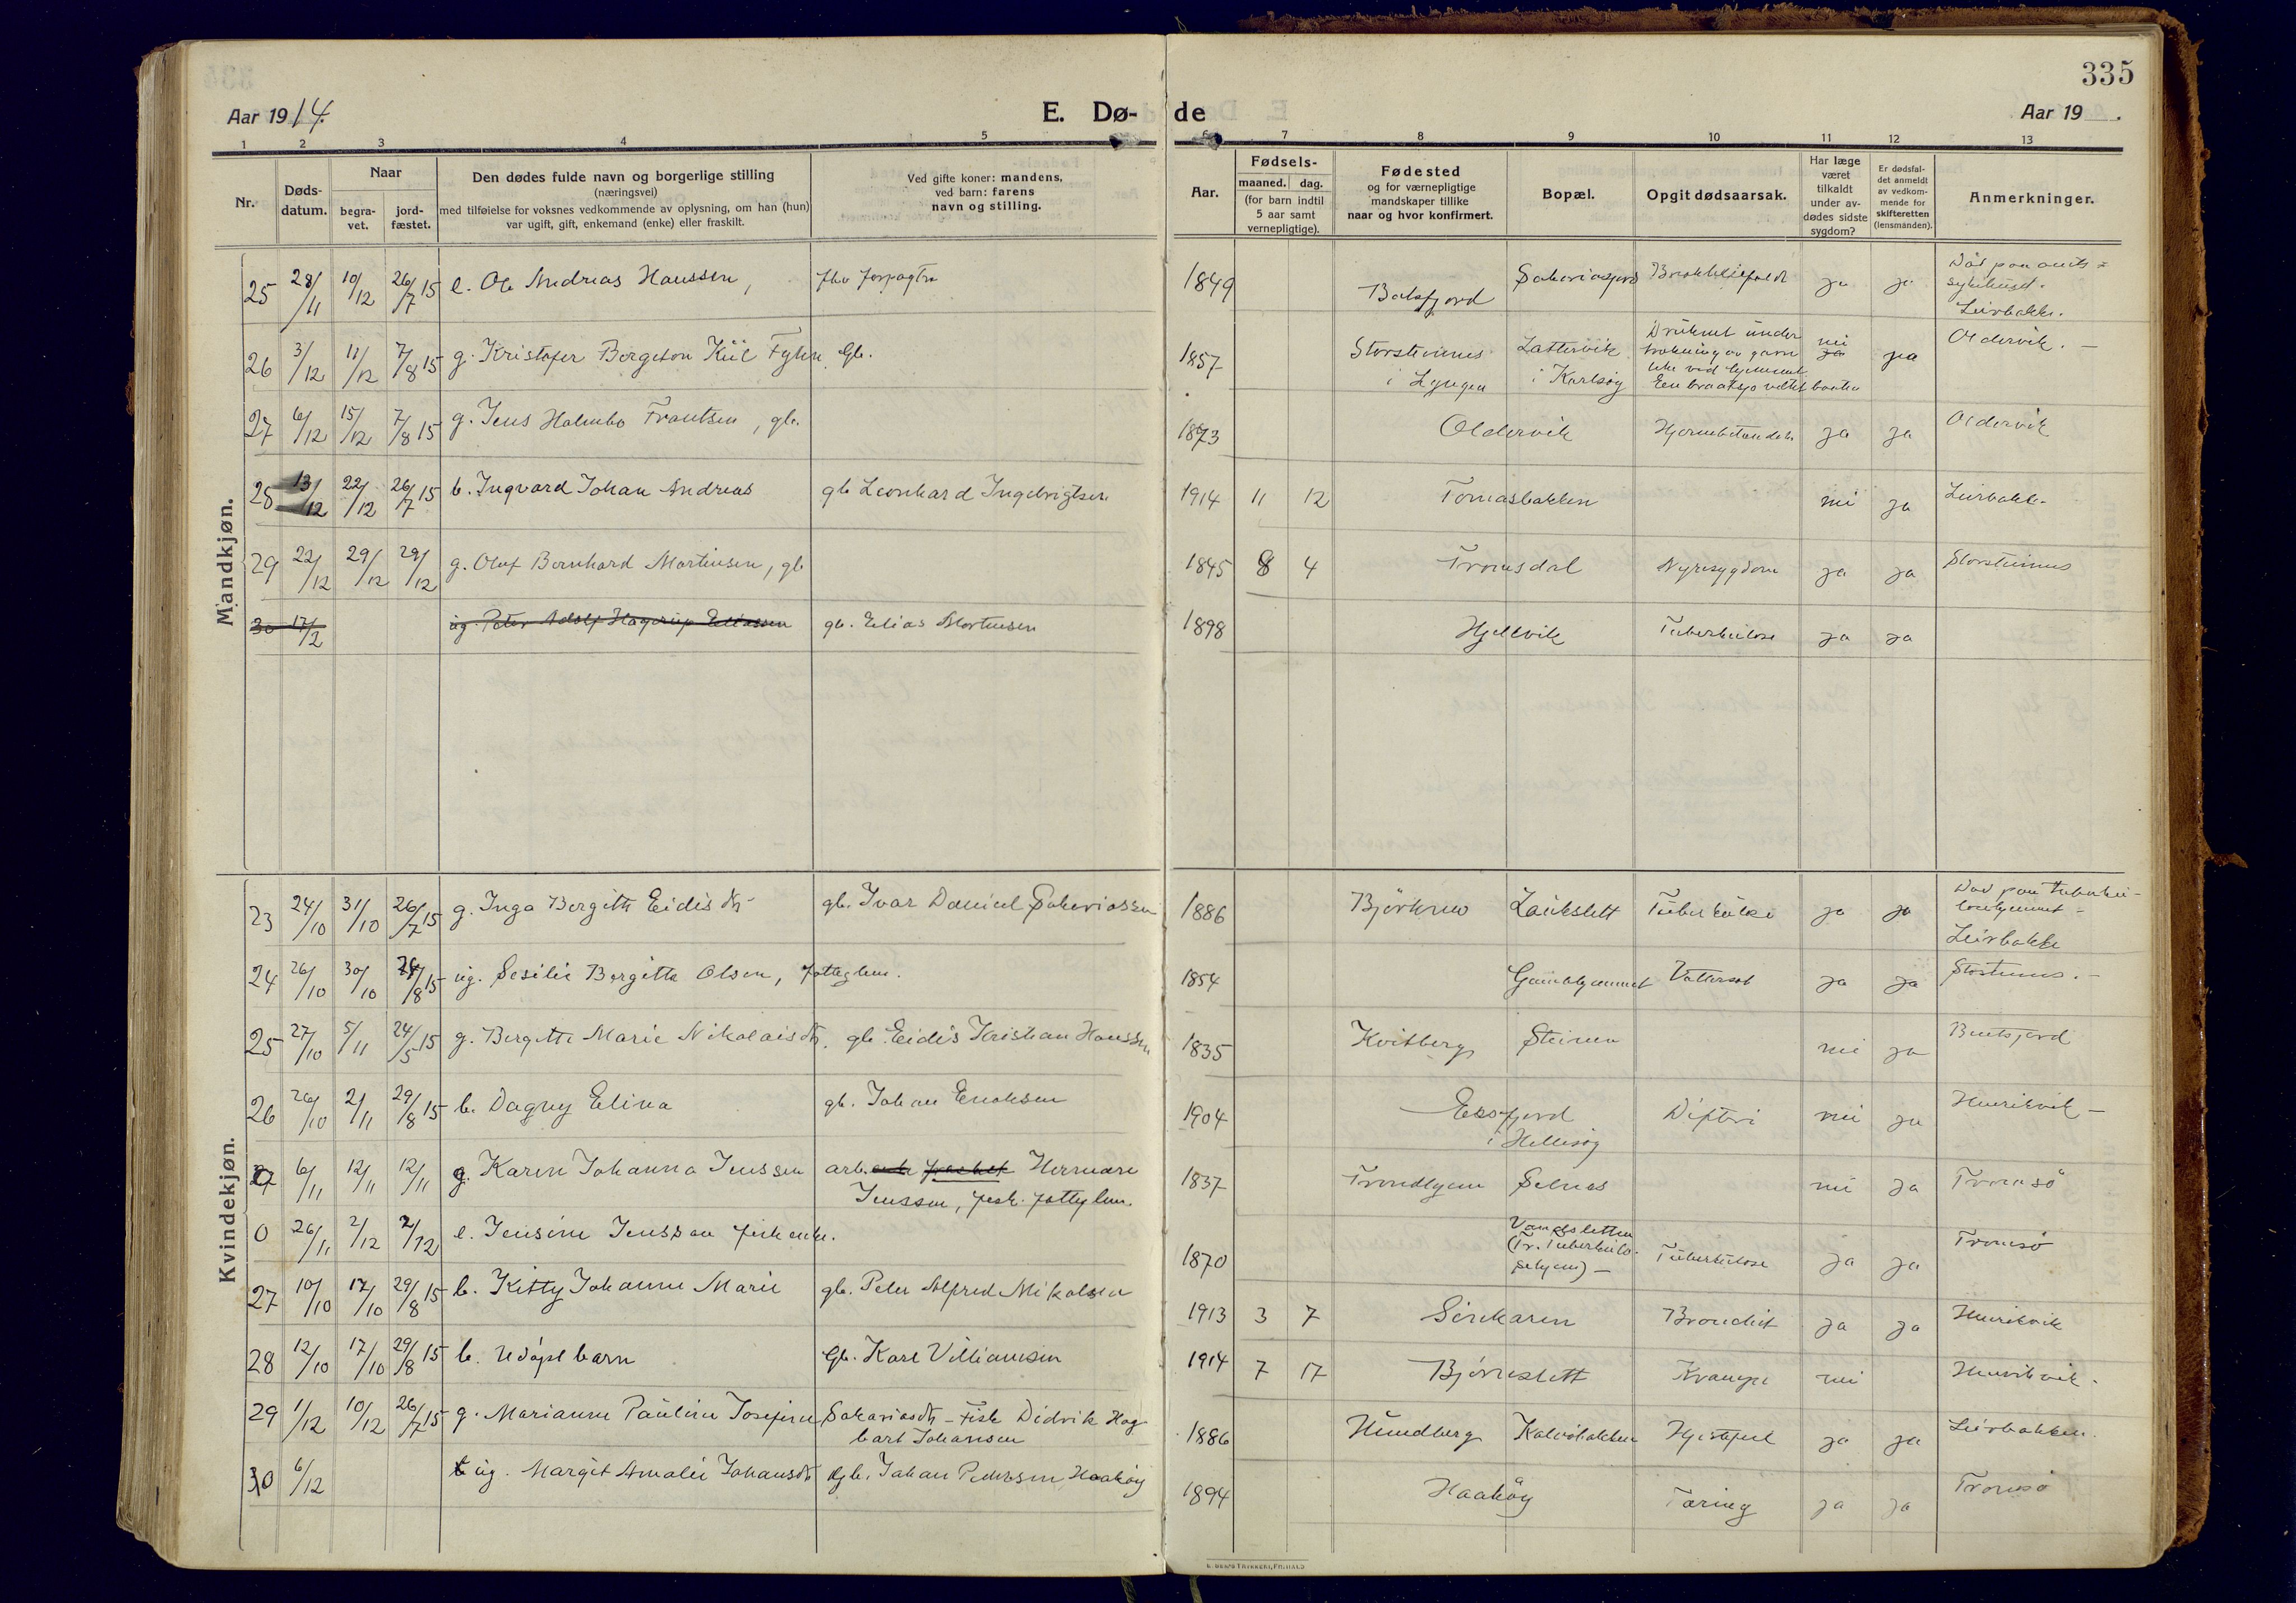 335
Aar 1914.
E. Dø-
de
Aar 19 .
1 2 3 4 5 6 7 8 9 10 11 12 13
Nr.
Døds-
datum.
Naar
begra-
vet.
jord-
fæstet.
Den dødes fulde navn og borgerlige stilling
(næringsvei)
med tilføielse for voksnes vedkommende av oplysning, om han (hun)
var ugift, gift, enkemand (enke) eller fraskilt.
Ved gifte koner: mandens,
ved barn: farens
navn og stilling.
Aar.
Fødsels-
maaned. dag.
(for barn indtil
5 aar samt
vernepligtige).
Fødested
og for værnepligtige
mandskaper tillike
naar og hvor konfirmert.
Bopæl.
Opgit dødsaarsak.
Har læge
været
tilkaldt
under av-
dødes sidste
sygdom?
Er dødsfal-
det anmeldt
av vedkom-
mende for
skifteretten
(lensmanden).
Anmerkninger.
Mandkjøn.
25 28/11 10/12 26/7 15 e. Ole Andreas Hanssen, fhv forpagter 1849 Balsfjord ja ja Död paa amts=
sykehuset.
Leirbakke.
26 3/12 11/12 7/8 15 g. Kristofer Bergeton Kiil Fyhn Gb. 1857 Storsteinnes Lattervik Druknet under nei ja Oldervik. –
trækning av garn
i Lyngen i Karlsöy like ved hjemmet
Een braatsjø veltet baaten
27 6/12 15/12 7/8 15 g. Jens Holmbo Frantsen, gb. 1873 Oldervik Hjernebetændelse ja ja Oldervik
28 13/12 22/12 26/7 15 b. Ingvard Johan Andreas gb Leonhard Ingebrigtsen 1914 11 12 Tomasbakken nei ja Leirbakk.
29 22/12 29/12 29/12 g. Oluf Bernhard Martinsen, gb 1845 8 4 Tromsdal Nyresygdom ja ja Storsteinnes
30 17/2 ug. Peter Adolf Hagerup Eliassen gb. Elias Mortensen 1898 Hjellvik Tuberkulose ja ja
Kvindekjøn.
23 24/10 31/10 26/7 15 g. Inga Bergitte Eidisdtr gb. Ivar Daniel Sakariassen 1886 Björknes Laukslett Tuberkulose ja ja Död paa tuberku-
losehjemmet –
Leirbakke
24 26/10 30/10 15 ug. Sesilie Bergitte Olsen, fatteglem. 1854 Gamlehjemmet Vattersot ja ja Storsteinnes. –
25 27/10 5/11 24/5 15 g. Bergitte Marie Nikolaisdtr. gb. Eidis Kristian Hanssen 1835 Kvitberg Steinen nei ja Bentsjord
26 26/10 2/11 29/8 15 b. Dagny Elina gb. Johan Enoksen 1904 Ersfjord Difteri nei ja Henrikvik –
i Hillesøy
27 6/11 12/11 12/11 g. Karen Johanna Jenssen arb. enke Herman 1837 Trondhjem Selnes nei ja Tromsö
Jenssen, fisk. fatteglem.
0 26/11 2/12 2/12 e. Jensine Jenssen fisk enke. 1870 Vangsletten
(Tr. Tuberkulo-
sehjem) – Tuberkulose ja ja Tromsö
27 10/10 17/10 29/8 15 b. Kitty Johanne Marie gb. Peter Alfred Mikalsen 1913 3 7 Sörekaren Bronchit ja ja Henrikvik
28 12/10 17/10 29/8 15 b. Udöpt barn Gb. Karl Villiamsen 1914 7 17 Björneslett Krampe nei Henrikvik.
29 1/12 10/12 26/7 15 g. Marianne Pauline Josefine Sakariasdtr – Fisk Didrik Hag
bart Johansen 1886 Hundberg Kalvebakken Hjertefeil ja ja Leirbakken.
30 6/12 ug. Margit Amalie Johansdtr gb. Johan Pedersen Haaköy 1894 Haaköy Tæring ja ja Tromsö